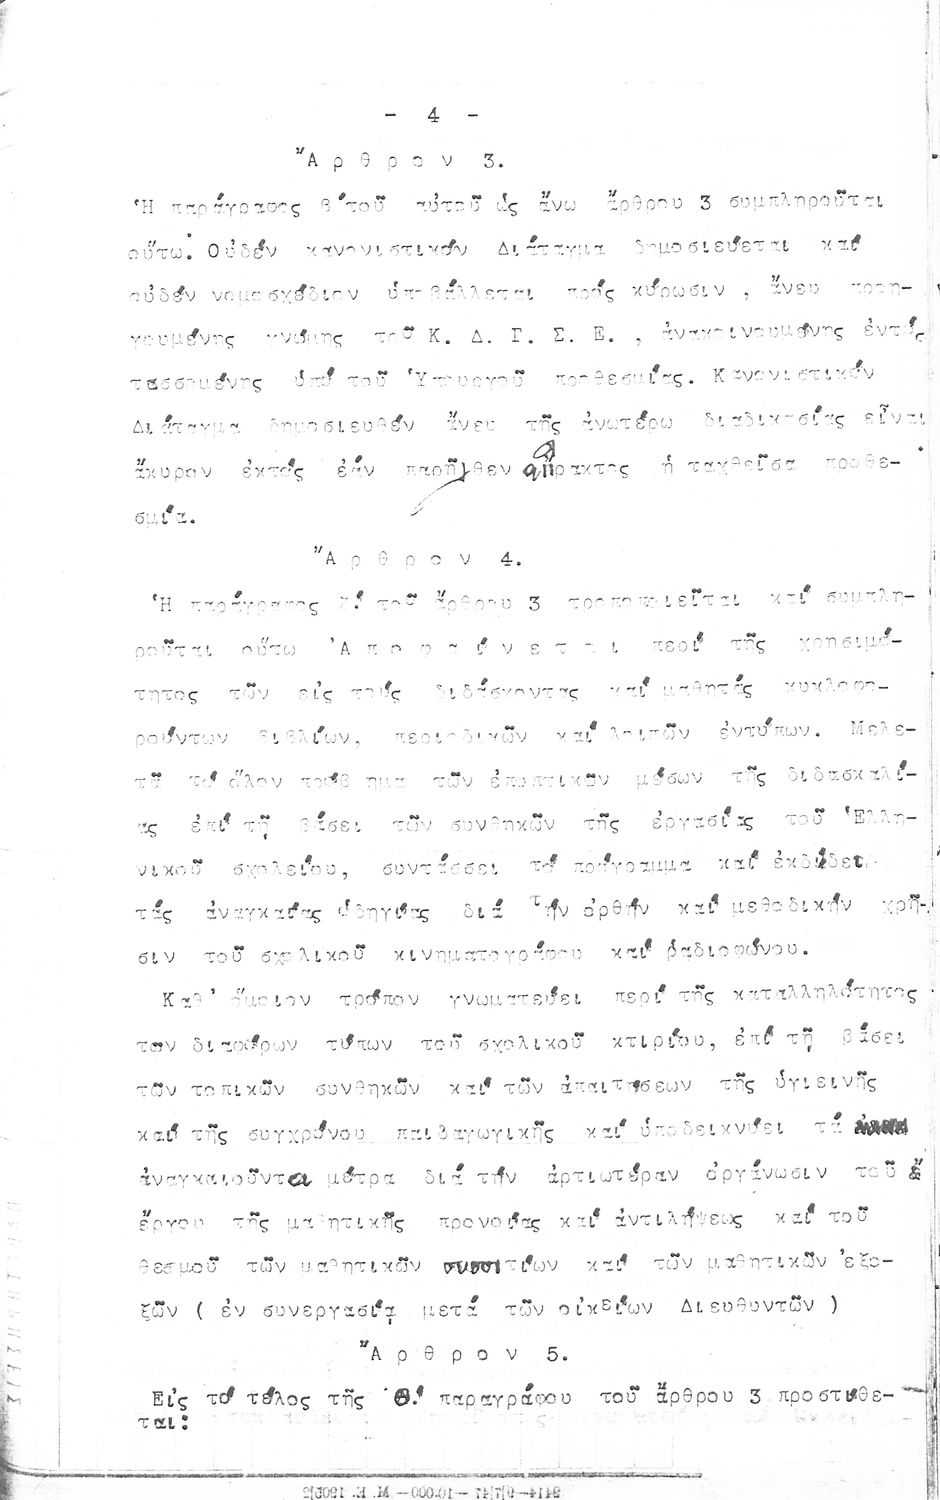 - 4 -
Ἄρθρον 3.
Ἡ παράγραφος β΄ τοῦ αὐτοῦ ὡς ἄνω ἄρθρου 3 συμπληροῦται
οὕτω: Οὐδέν κανονιστικόν Διάταγμα δημοσιεύεται καί
οὐδέν νομοσχέδιον ὑποβάλλεται πρός κύρωσιν, ἄνευ προη-
γουμένης γνώμης τοῦ Κ. Δ. Γ. Σ. Ε., ἀνακοινουμένης ἐντός
τασσομένης ὑπό τοῦ Ὑπουργοῦ προθεσμίας. Κανονιστικόν
Διάταγμα δημοσιευθέν ἄνευ τῆς ἀνωτέρω διαδικασίας εἶναι
ἄκυρον ἐκτός ἐάν παρῆλθεν ἄπρακτος ἡ ταχθεῖσα προθε-
σμία.
Ἄρθρον 4.
Ἡ παράγραφος τοῦ ἄρθρου 3 τροποποιεῖται καί συμπλη-
ροῦται οὕτω Ἀποφαίνεται περί τῆς χρησιμό-
τητος τῶν εἰς τούς διδάσκοντας καί μαθητάς κυκλοφο-
ρούντων βιβλίων, περιοδικῶν καί λοιπῶν ἐντύπων. Μελε-
τᾶ τό ὅλον πρόβ ημα τῶν ἐποπτικῶν μέσων τῆς διδασκαλί-
ας ἐπί τῇ βάσει τῶν συνθηκῶν τῆς ἐργασίας τοῦ Ἑλλη-
νικοῦ σχολείου, συντάσσει τό πρόγραμμα καί ἐκδίδει
τάς ἀναγκαίας ὁδηγίας διά τήν ὀρθήν καί μεθοδικήν χρῆ-
σιν τοῦ σχολικοῦ κινηματογράφου καί ραδιοφώνου.
Καθ' ὅμοιον τρόπον γνωματεύει περί τῆς καταλληλότητος
των διαφόρων τύπων τοῦ σχολικοῦ κτιρίου, ἐπί τῇ βάσει
τῶν τοπικῶν συνθηκῶν καί τῶν ἀπαιτήσεων τῆς ὑγιεινῆς
καί τῆς συγχρόνου παιδαγωγικῆς καί ὑποδεικνύει τά
ἀναγκαιοῦντα μέτρα διά τήν ἀρτιωτέραν ὀργάνωσιν τοῦ
ἔργου τῆς μαθητικῆς προνοίας καί ἀντιλήψεως καί τοῦ
θεσμοῦ τῶν μαθητικῶν συσσιτίων καί τῶν μαθητικῶν ἐξο-
ξῶν ( ἐν συνεργασίᾳ μετά τῶν οἰκείων Διευθυντῶν )
Ἄρθρον 5.
Εἰς τό τέλος τῆς Θ΄ παραγράφου τοῦ ἄρθρου 3 προστίθε-
ται: